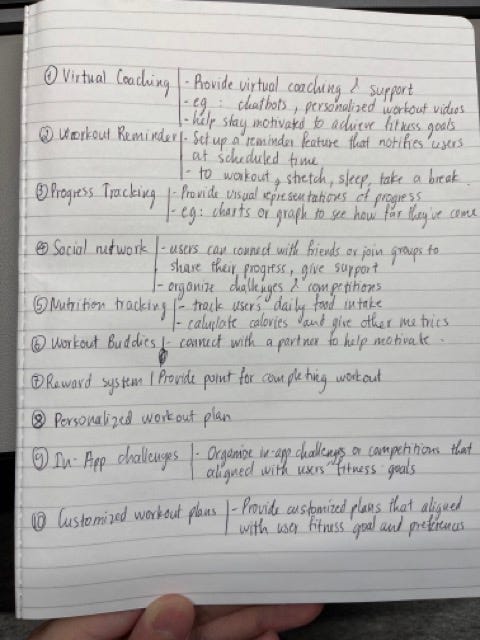 ① Virtual Coaching | - Provide virtual coaching & support
- eg : chatbots, personalized workout videos
- help stay motivated to achieve fitness goals
② Workout Reminder | - Set up a reminder feature that notifies users
at scheduled time
- to workout, stretch, sleep, take a break.
③ Progress Tracking | - Provide visual representations of progress
- eg: charts or graph to see how far they've come
④ Social network | - users can connect with friends or join groups to
share their progress, give support
- organize challenges & competitions
⑤ Nutrition tracking | - track users' daily food intake
- calculate calories and give other metrics
⑥ Workout Buddies | - connect with a partner to help motivate.
⑦ Reward system | Provide point for completing workout
⑧ Personalized workout plan
⑨ In-App challenges | - Organize in-app challenges or competitions that
aligned with users' fitness goals
⑩ Customized workout plans | - Provide customized plans that aligned
with user fitness goal and preferences